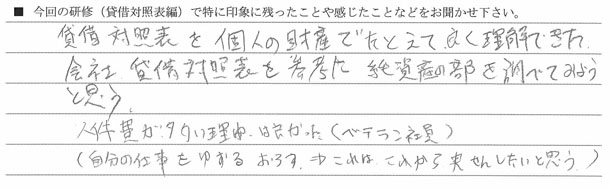 ■ 今回の研修（貸借対照表編）で特に印象に残ったことや感じたことなどをお聞かせ下さい。
貸借対照表を個人の財産でたとえて、良く理解できた。
会社貸借対照表を参考に純資産の部を調べてみよう
と思う。
人件費が タクい理由、は良かった（ベテラン社員）
（自分の仕事をゆずる おろす。⇒これは、これから実せんしたいと思う。）